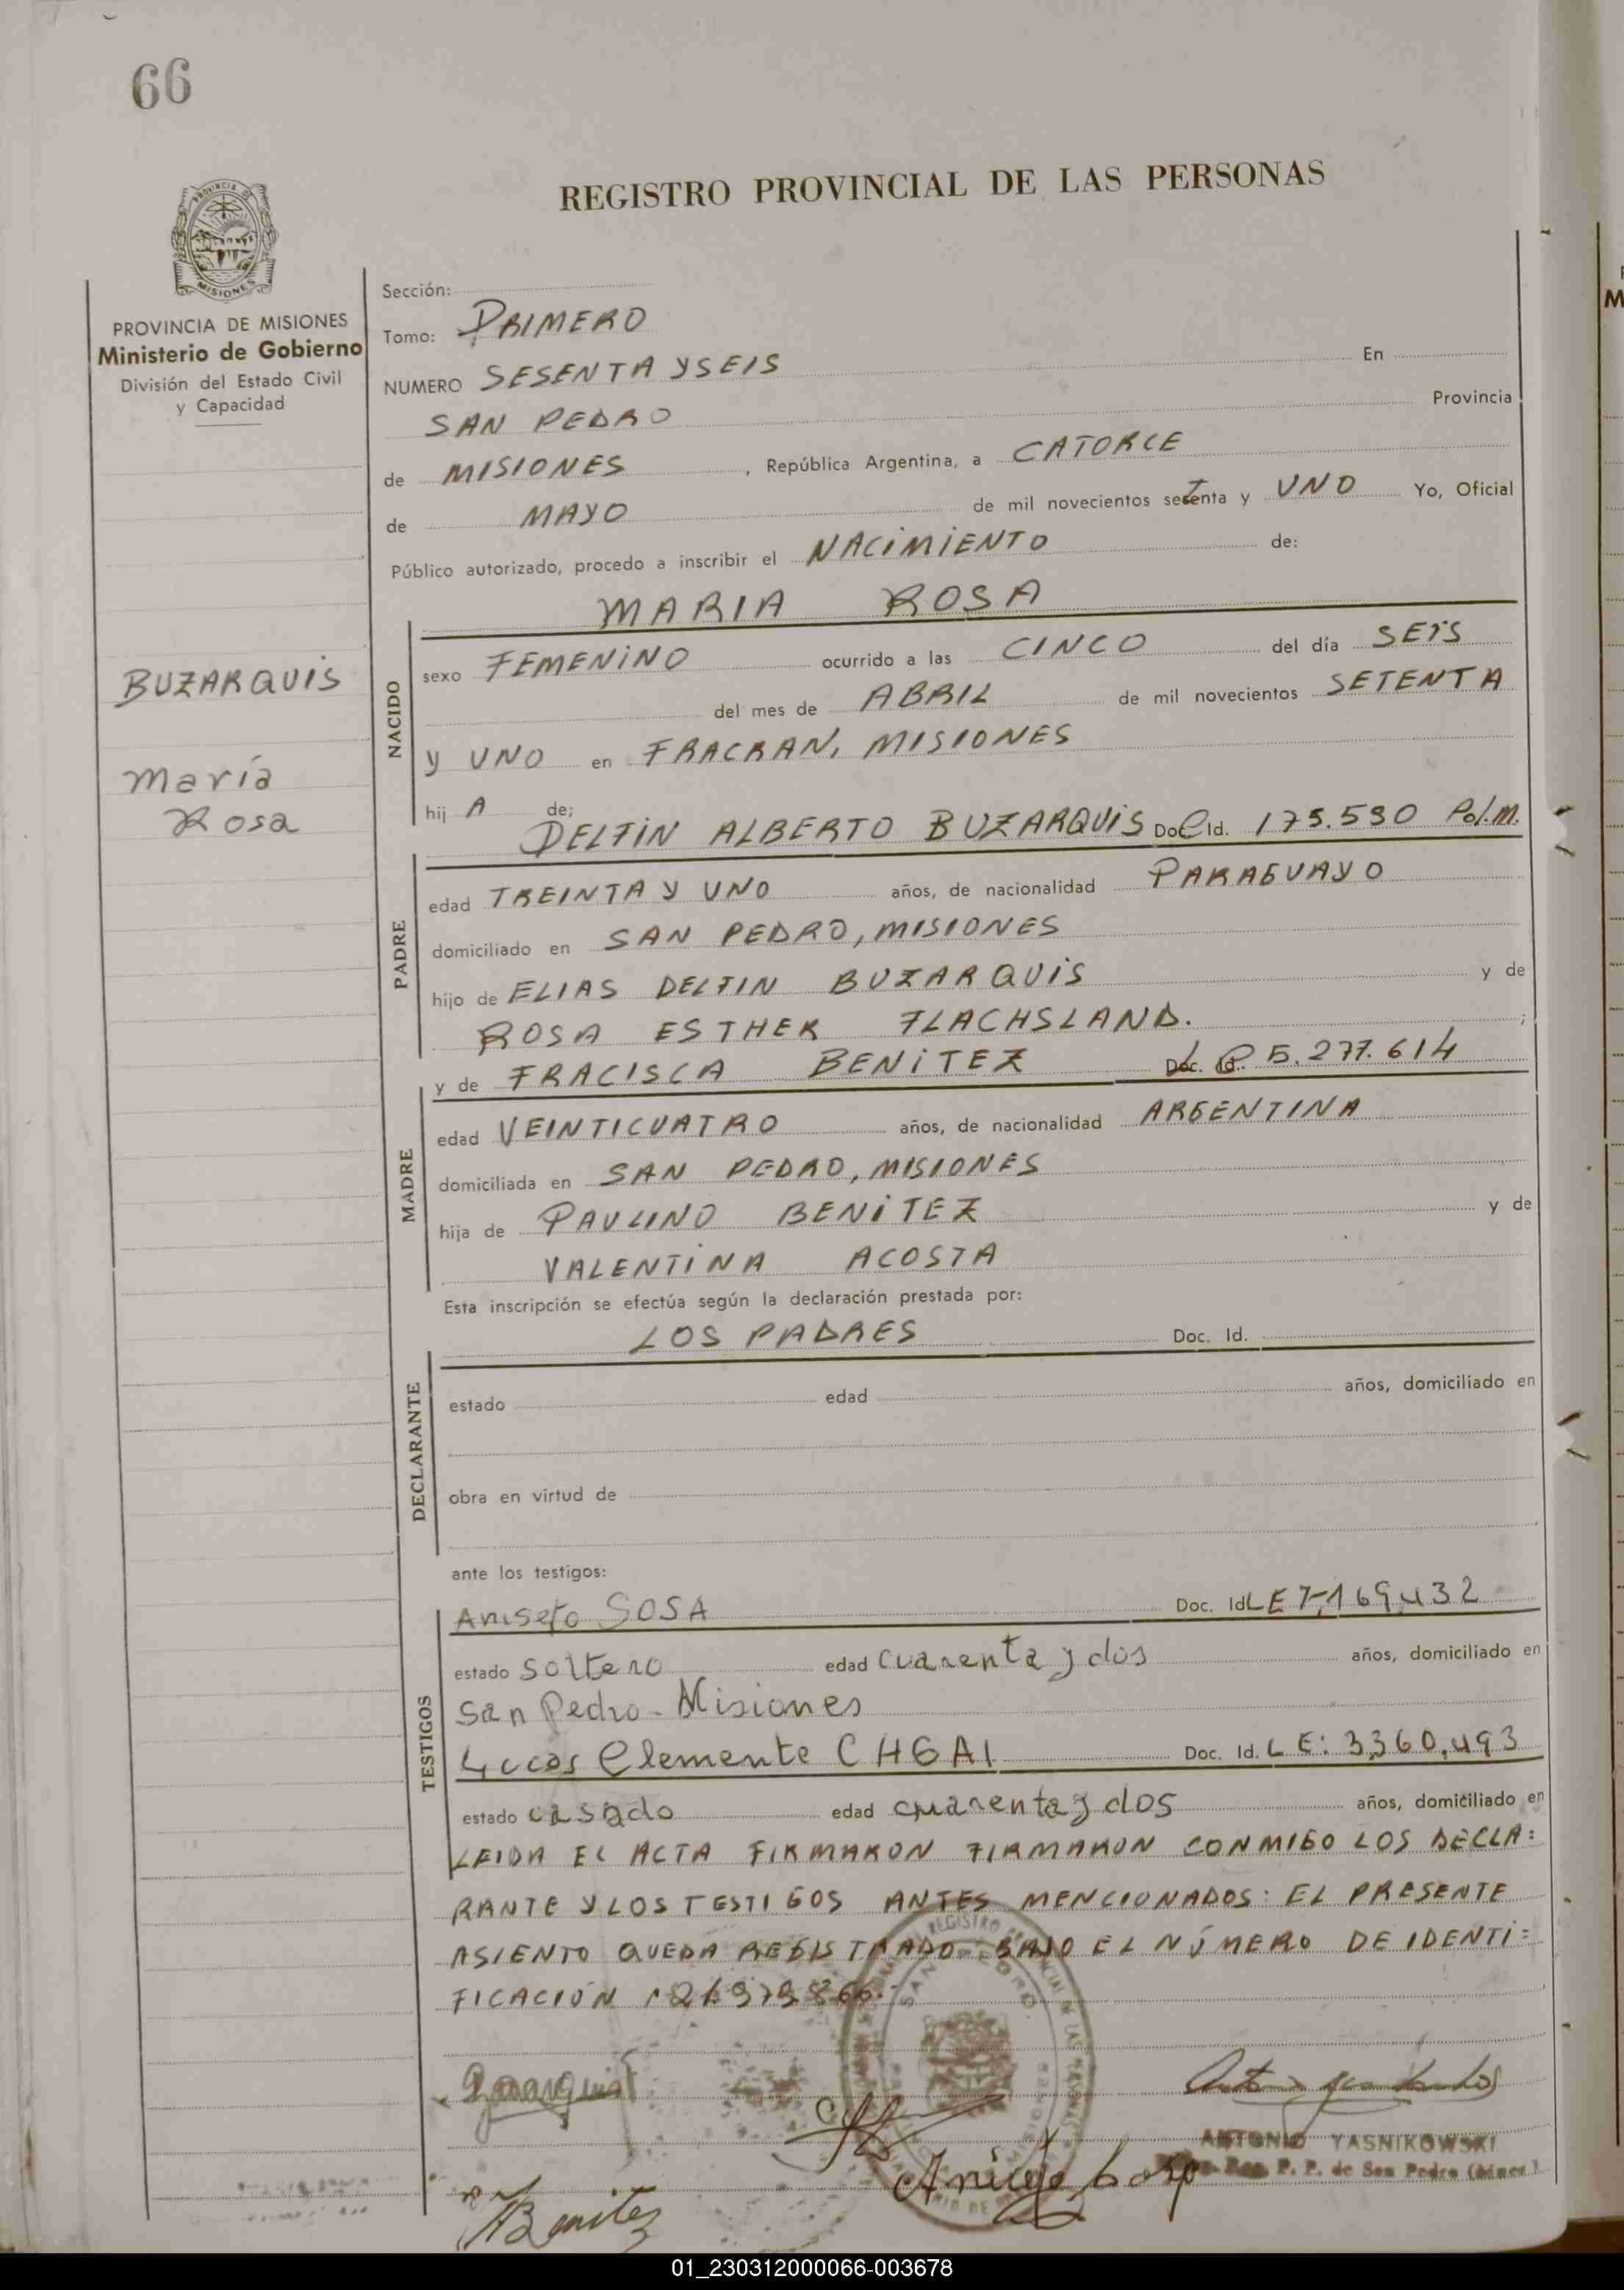 66
REGISTRO PROVINCIAL DE LAS PERSONAS
PROVINCIA DE
MISIONES
PROVINCIA DE MISIONES
Ministerio de Gobierno
División del Estado Civil
y Capacidad
BUZARQUIS
María
Rosa
Sección:
Tomo: PRIMERO
NUMERO SESENTA Y SEIS En
SAN PEDRO Provincia
de MISIONES, República Argentina, a CATORCE
de MAYO de mil novecientos setenta y UNO Yo, Oficial
Público autorizado, procedo a inscribir el NACIMIENTO de:
MARIA ROSA
NACIDO
sexo FEMENINO ocurrido a las CINCO del día SEIS
del mes de ABRIL de mil novecientos SETENTA
Y UNO en FRACRAN, MISIONES
hij A de;
DELFIN ALBERTO BUZARQUIS Doc. Id. 175.530 Pol.M.
PADRE
edad TREINTA Y UNO años, de nacionalidad PARAGUAYO
domiciliado en SAN PEDRO, MISIONES
hijo de ELIAS DELFIN BUZARQUIS y de
ROSA ESTHER FLACHSLAND. ;
y de FRACISCA BENITEZ Doc. Id. 5.277.614
MADRE
edad VEINTICUATRO años, de nacionalidad ARGENTINA
domiciliada en SAN PEDRO, MISIONES
hija de PAULINO BENITEZ y de
VALENTINA ACOSTA
Esta inscripción se efectúa según la declaración prestada por:
LOS PADRES Doc. Id.
DECLARANTE
estado edad años, domiciliado en
obra en virtud de
ante los testigos:
TESTIGOS
Aniseto SOSA Doc. Id LE 7.169.432
estado soltero edad cuarenta y dos años, domiciliado en
San Pedro - Misiones
Lucas Clemente CHGAI Doc. Id. LE: 3360.493
estado casado edad cuarenta y dos años, domiciliado en
LEIDA EL ACTA FIRMARON FIRMARON CONMIGO LOS DECLA=
RANTE Y LOS TESTIGOS ANTES MENCIONADOS: EL PRESENTE
ASIENTO QUEDA REGISTRADO BAJO EL NÚMERO DE IDENTI=
FICACIÓN
REGISTRO PROVINCIAL DE LAS PERSONAS
SAN PEDRO
MISIONES
ANTONIO YASNIKOWSKI
P. P. de San Pedro (Mnes.)
Benitez
01_230312000066-003678